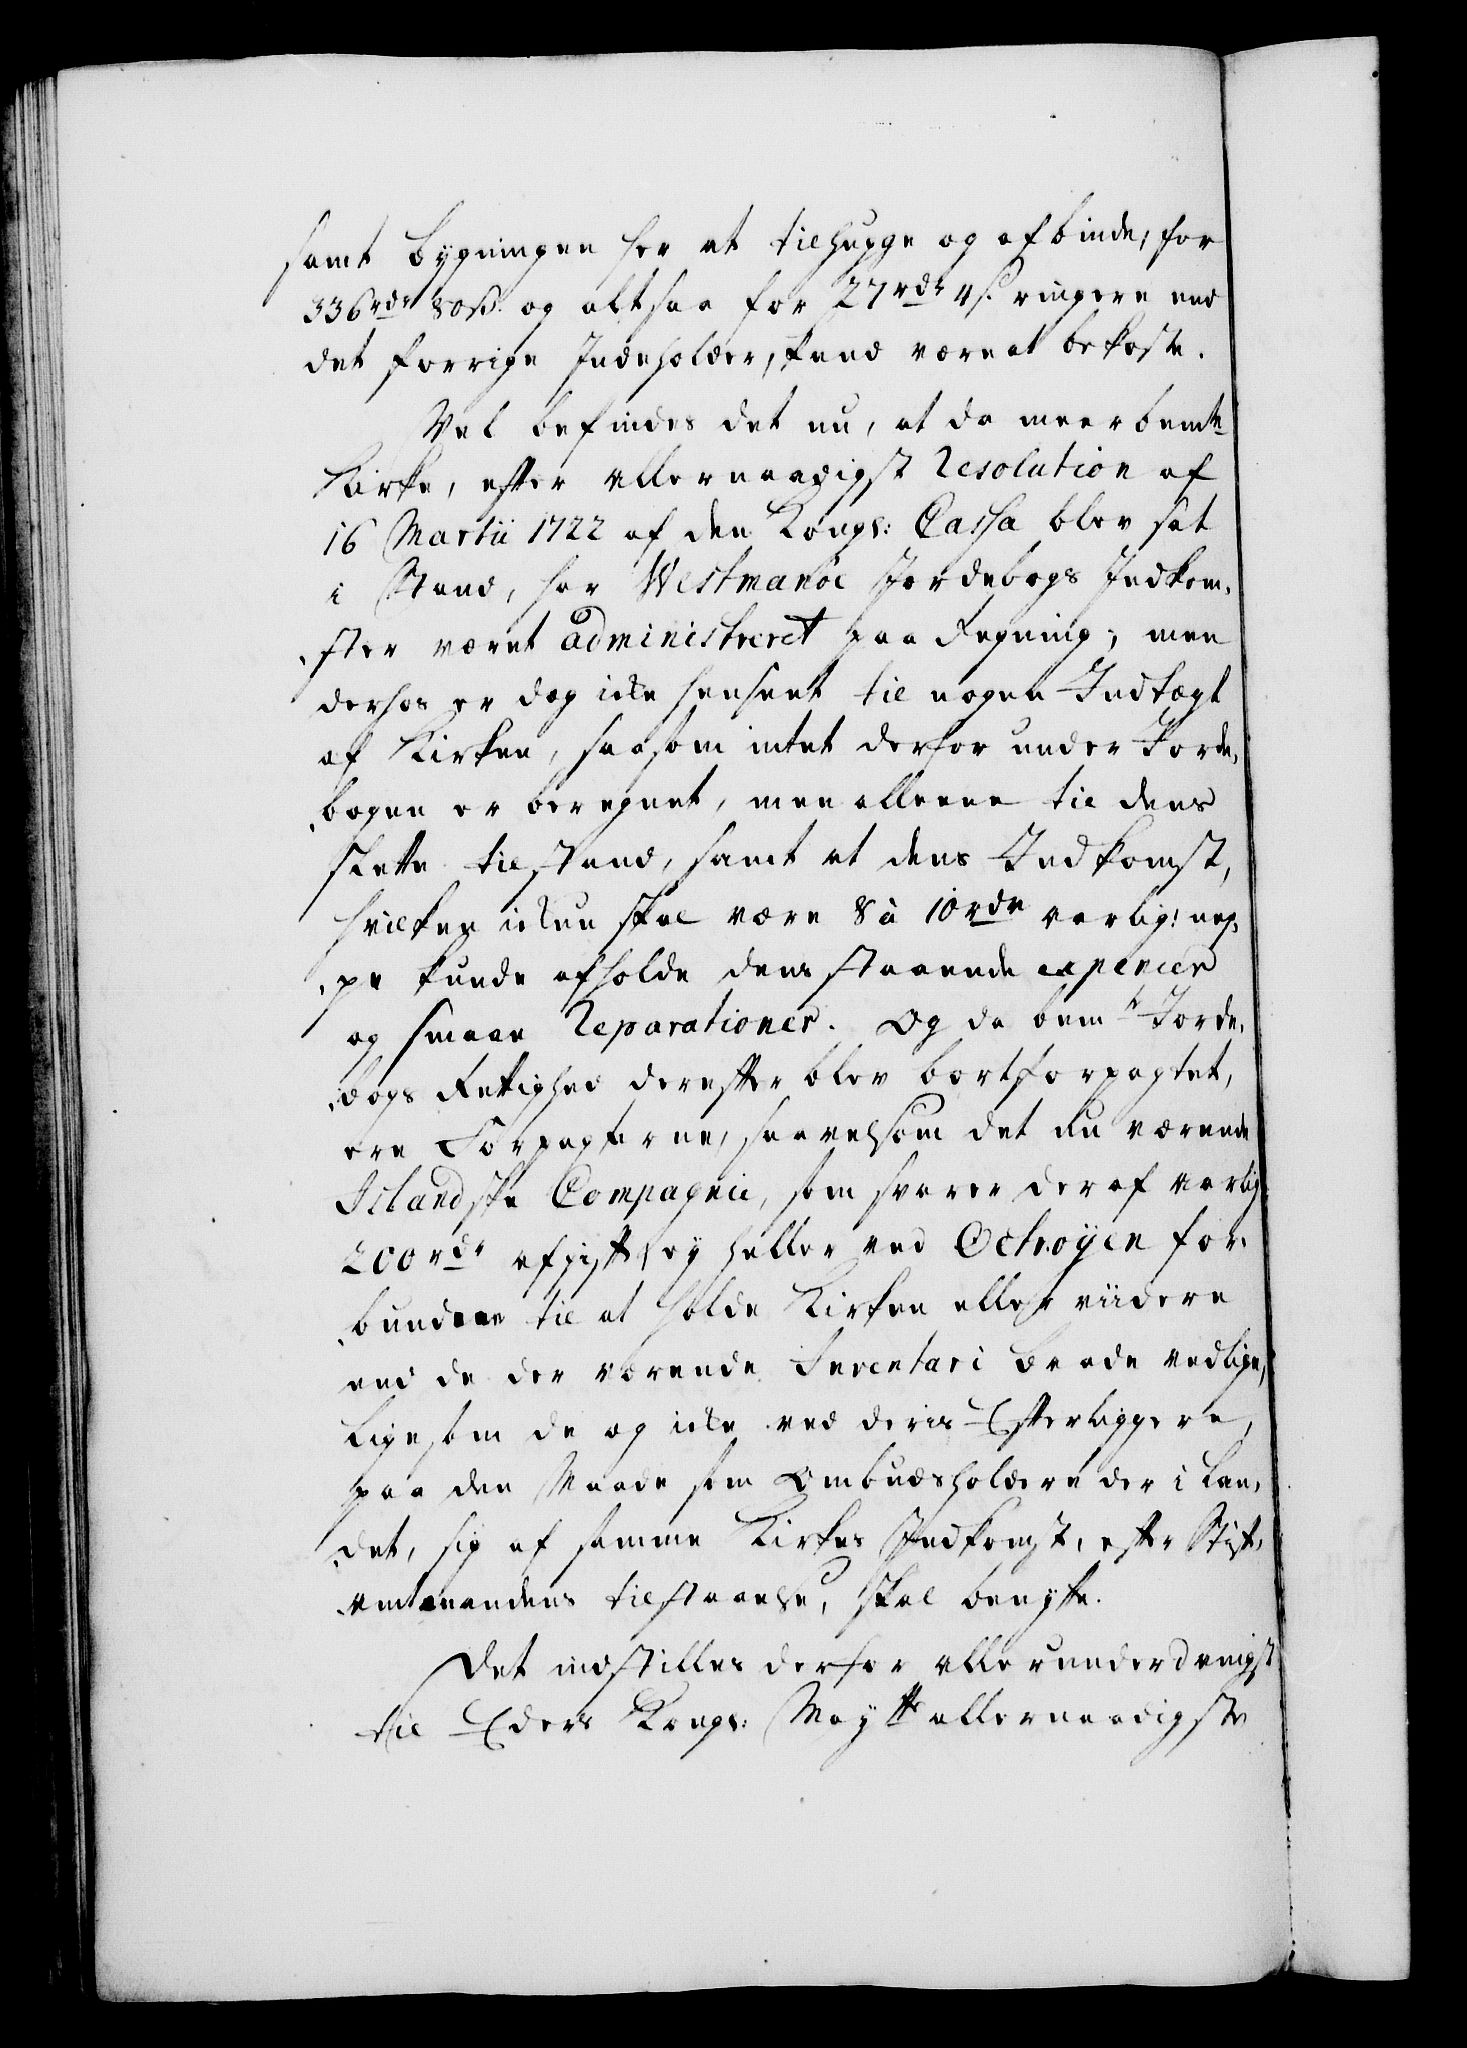 samt bygningen her at tilhugge og afbinde, for
336 rdr 80 ß. og altsaa for 27 rdr 4 ß. ringere end
det forrige Indeholder, kand være at bekoste.
Vel befindes det nu, at da meerbemte
Kirke, efter allernaadigst Resolution af
16 Martii 1722 af den Kongl: Cassa blev sat
i Stand, har Westmanöe Jordebogs Indkom,
ster været administreret paa Regning; men
derhos er dog icke henseet til nogen Indtægt
af Kirken, saasom intet derfor under Jorde,
bogen er beregnet, men alleene til dens
slette tilstand, samt at dens Indkomst,
hvilken ickun skal være 8 à 10 rdr aarlig: nep,
pe kunde afholde dens staaende expencer
og smaae Reparationer. Og da bemte Jorde,
bogs Rettighed derefter blev bortforpagtet,
ere Forpagterne, saavelsom det nu værende
Islandske Compagnie, som svarer deraf aarlig
200 rdr afgift, ey heller ved Octroyen for,
bundne til at holde Kirken eller viidere
end de der værende Inventarii Baade vedlige,
ligesom de og icke ved deris Efterliggere,
paa den Maade som Ombudsholdere der i Lan,
det, sig af samme Kirkes Indkomst, efter Stift,
amtmandens tilstaaelse, skal benytte.
Det indstilles derfor allerunderdanigst
til Eders Kongl: Mayts allernaadigste